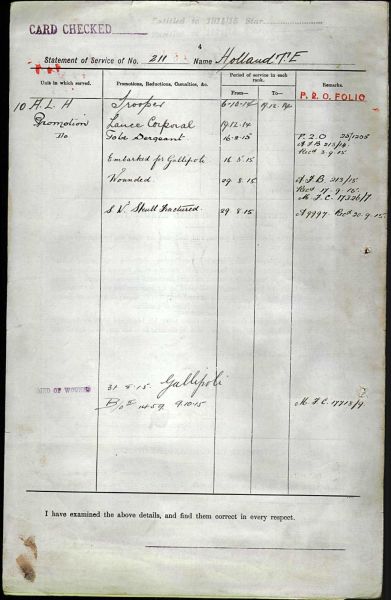 Entitled to 1914/15 Star
CARD CHECKED
4
Statement of Service of No. 211 Name Holland T. E
Unit in which served.
Promotions, Reductions, Casualties, &c.
Period of service in each rank.
From—
To—
Remarks.
P. R. O. FOLIO.
10 A. L. H Trooper 6-10-14 19.12.14
Promotion Lance Corporal 19.12.14
Do To be Sergeant 16-8-15 P. 2.O
A F B 213/14
Rec 3-9-15
Embarked for Gallipoli 16 5.15
Wounded. 29. 8. 15 A. F. B. 213/15
Rec 17. 9. 15.
M. F. C. 17326/1
S. V. Skull Fractured. 29 8.15 A 9997. 20. 9-15.
DIED OF WOUNDS 31-8-15. Gallipoli
9-10-15 M. F. C. 17713/9
I have examined the above details, and find them correct in every respect.